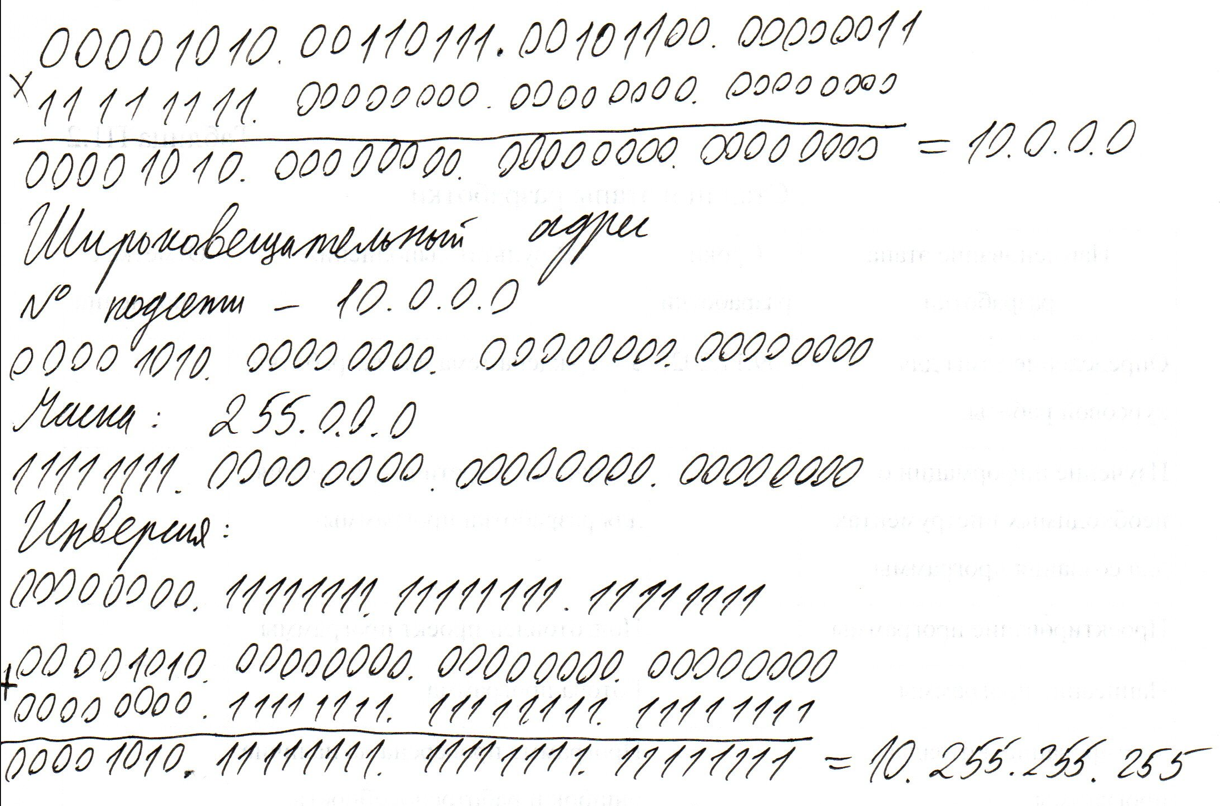 00001010. 00110111. 00101100. 00000011
× 11111111. 00000000. 00000000. 00000000
00001010. 00000000. 00000000. 00000000 = 10.0.0.0
Широковещательный адрес
N° подсети - 10.0.0.0
00001010. 00000000. 00000000. 00000000
Маска: 255.0.0.0
11111111. 00000000. 00000000. 00000000
Инверсия:
00000000. 11111111. 11111111. 11111111
+ 00001010. 00000000. 00000000. 00000000
00000000. 11111111. 11111111. 11111111
00001010. 11111111. 11111111. 11111111 = 10.255.255.255